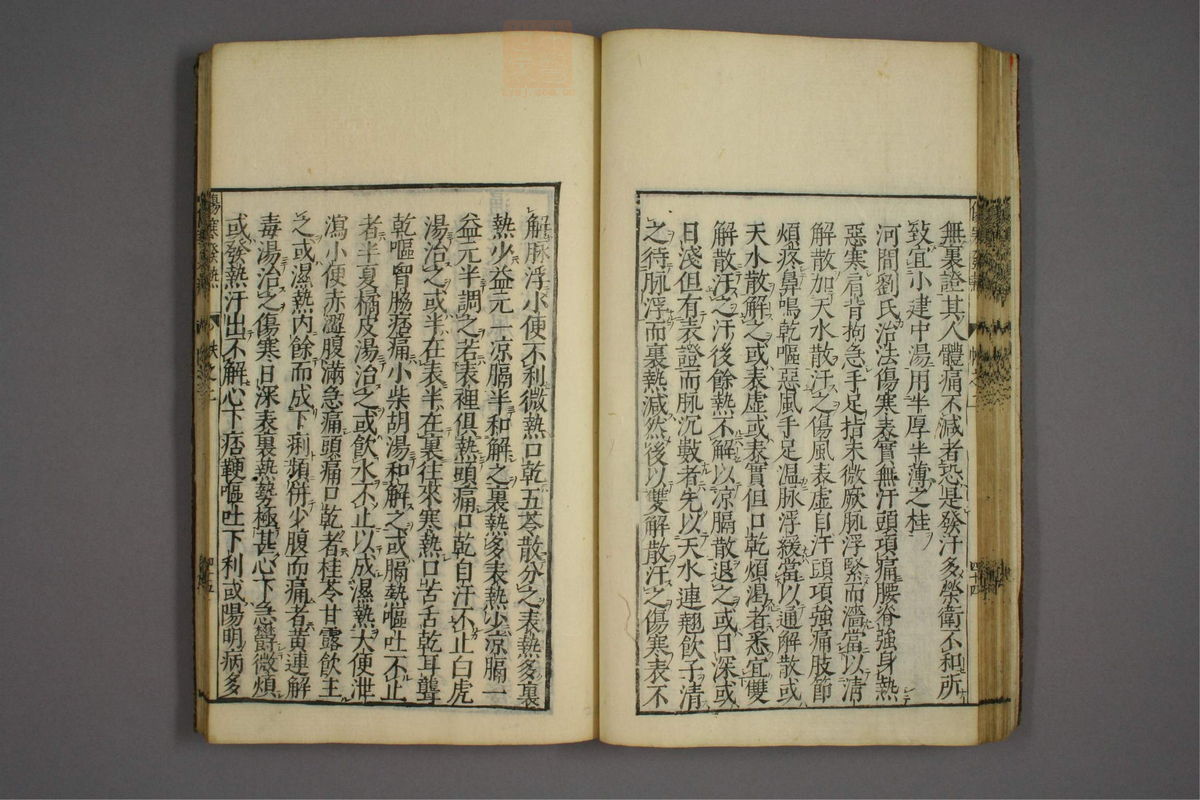 無裏證其人體痛不減者恐是發汗多榮衛不和所
致宜小建中湯用半厚半薄之桂
河間劉氏治法傷寒表實無汗頭項痛腰脊強身熱
惡寒肩背拘急手足指末微厥脉浮緊而濇當以清
解散加天水散汗之傷風表虛自汗頭項強痛肢節
煩疼鼻鳴乾嘔惡風手足温脉浮緩當以通解散或
天水散解之或表虛或表實但口乾煩渴者悉宜雙
解散汗之汗後餘熱不解以凉膈散退之或日深或
日淺但有表證而脉沉數者先以天水連翹飲子清
之待脉浮而裏熱減然後以雙解散汗之傷寒表不
解脉浮小便不利微熱口乾五苓散分之表熱多裏
熱少益元一凉膈半和解之裏熱多表熱少凉膈一
益元半調之若表裡俱熱頭痛口乾自汗不止白虎
湯治之或半在表半在裏往來寒熱口苦舌乾耳聾
乾嘔胷脇痞痛小柴胡湯和解之或膈熱嘔吐不止
者半夏橘皮湯治之或飲水不止以成濕熱大便泄
瀉小便赤澀腹滿急痛頭痛口乾者桂苓甘露飲主
之或濕熱内餘而成下痢頻併少腹而痛者黃連解
毒湯治之傷寒日深表裏熱勢極甚心下急欝微煩
或發熱汗出不解心下痞鞕嘔吐下利或陽明病多
傷寒發熱
帙之二
四十五